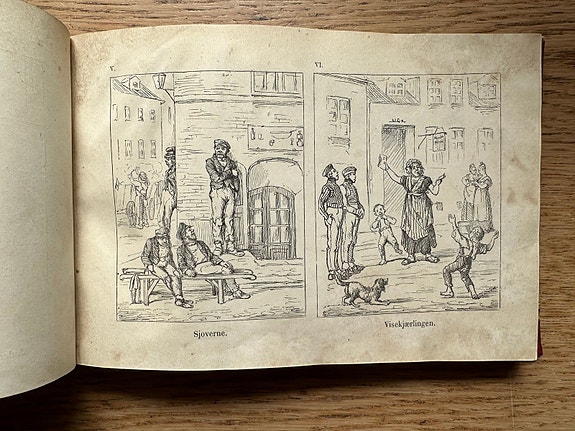 V.
VI.
Sjoverne.
Visekjærlingen.